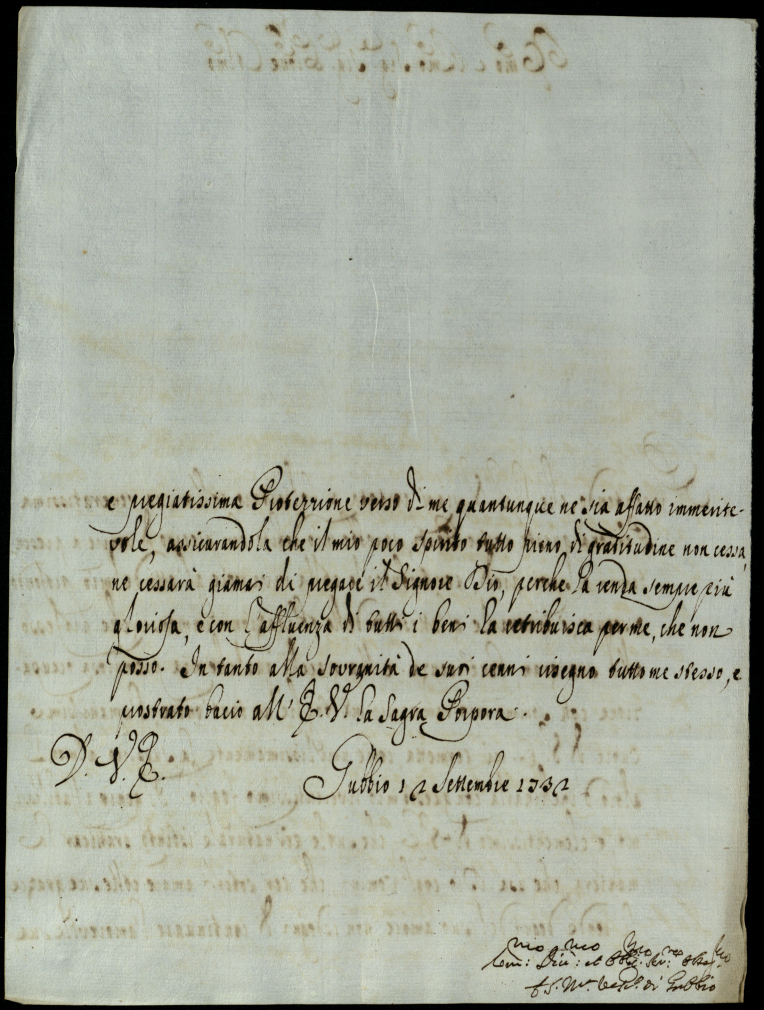 e pregiatissima Protezzione verso di me quantunque ne sia affatto immerite-
vole, assicurandola che il mio poco spirito tutto pieno di gratitudine non cessa,
ne cessarà giamai di pregare il Signore Dio, perche la renda sempre più
gloriosa, e con l'affluenza di tutti i beni la retribuisca per me, che non
posso. In tanto alla sovranità de suoi cenni rasegno tutto me stesso, e
prostrato bacio all' E. V. la Sagra Porpora.
D. V. E.
Gubbio 12 Settembre 1732
di Gubbio